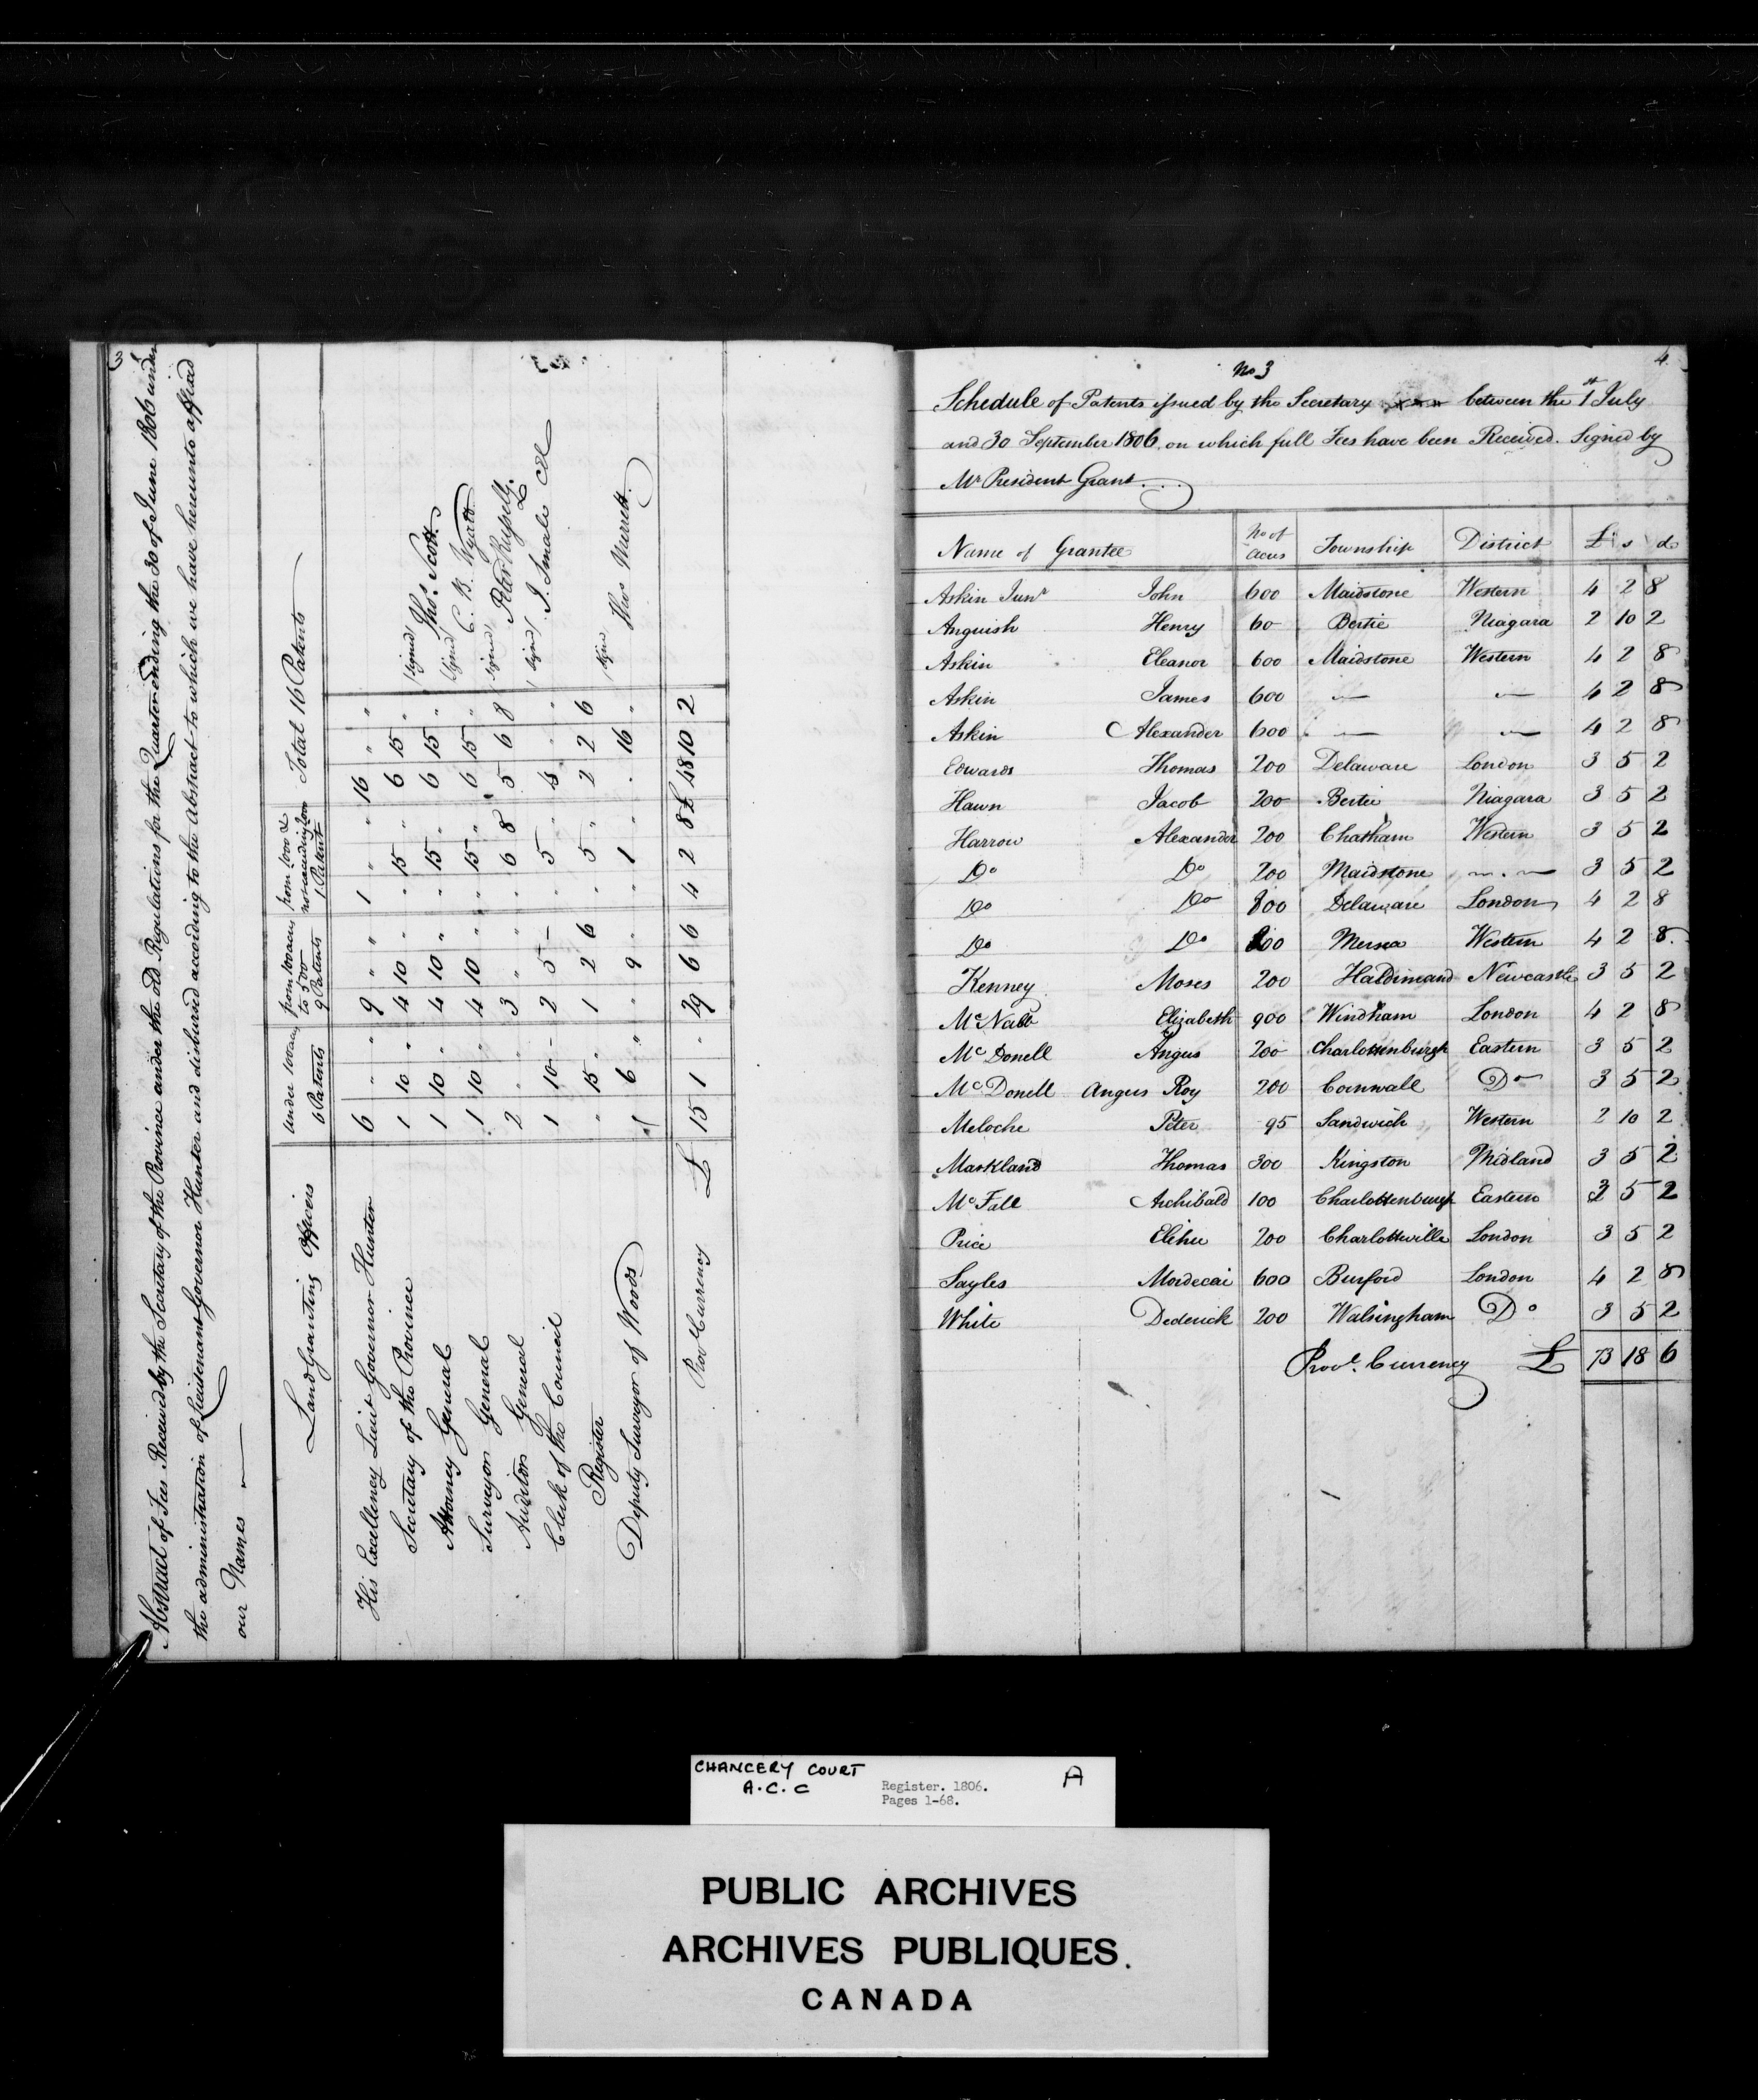 3
Abstract of Fees Received by the Secretary of the Province under the old Regulations for the Quarter ending the 30 of June 1806 under
the administration of Lieutenant Governor Hunter and disbursed according to the Abstract to which we have hereunto affixed
our Names
Land Granting Officers | under 100 acres 6 Patents | from 100 acres to 500 9 Patents | from 1000 & not exceeding 1 Patent | Total 16 Patents
His Excellency Lieut Governor Hunter 6 " " 9 " " 1 " " 16 " "
Secretary of the Province 1 10 " 4 10 " " 15 " 6 15 " Signed Thos. Scott
Attorney General 1 10 " 4 10 " " 15 " 6 15 " Signed C. B. Wyatt
Surveyor General 1 10 " 4 10 " " 15 " 6 15 " Signed Peter Russell
Auditor General 2 " " 3 " " " 6 8 5 6 8 Signed J. Small
Clerk of the Council 1 10 - 2 5 - " 5 " 4 " "
Register " 15 " 1 2 6 " 5 " 2 2 6
Deputy Surveyor of Woods " 6 " " 9 " " 1 " . 16 " Signed Thos Merritt
Prov. Currency £ 15 1 " 29 6 6 4 2 8 £ 48 10 2
4
No 3
Schedule of Patents issued by the Secretary between the 1st July
and 30 September 1806. on which full Fees have been Received. Signed by
Mr President Grant
Name of Grantee | No of acres | Township | District | £ s d
Askin Junr John 600 Maidstone Western 4 2 8
Anguish Henry 60 Bertie Niagara 2 10 2
Askin Eleanor 600 Maidstone Western 4 2 8
Askin James 600 — — 4 2 8
Askin Alexander 600 — — 4 2 8
Edwards Thomas 200 Delaware London 3 5 2
Hawn Jacob 200 Bertie Niagara 3 5 2
Harrow Alexander 200 Chatham Western 3 5 2
Do Do 200 Maidstone — 3 5 2
Do Do 800 Delaware London 4 2 8
Do Do 00 Mersea Western 4 2 8
Kenney Moses 200 Haldimand Newcastle 3 5 2
McNabb Elizabeth 900 Windham London 4 2 8
McDonell Angus 200 Charlottenburgh Eastern 3 5 2
McDonell Angus Roy 200 Cornwall Do 3 5 2
Meloche Peter 95 Sandwich Western 2 10 2
Markland Thomas 300 Kingston Midland 3 5 2
McFall Archibald 100 Charlottenburgh Eastern 3 5 2
Price Elihu 200 Charlotteville London 3 5 2
Sayles Mordecai 600 Burford London 4 2 8
White Dederick 200 Walsingham Do 3 5 2
Provl. Currency £ 73 18 6
CHANCERY COURT
A.C.C
Register. 1806.
Pages 1-68.
A
PUBLIC ARCHIVES
ARCHIVES PUBLIQUES.
CANADA